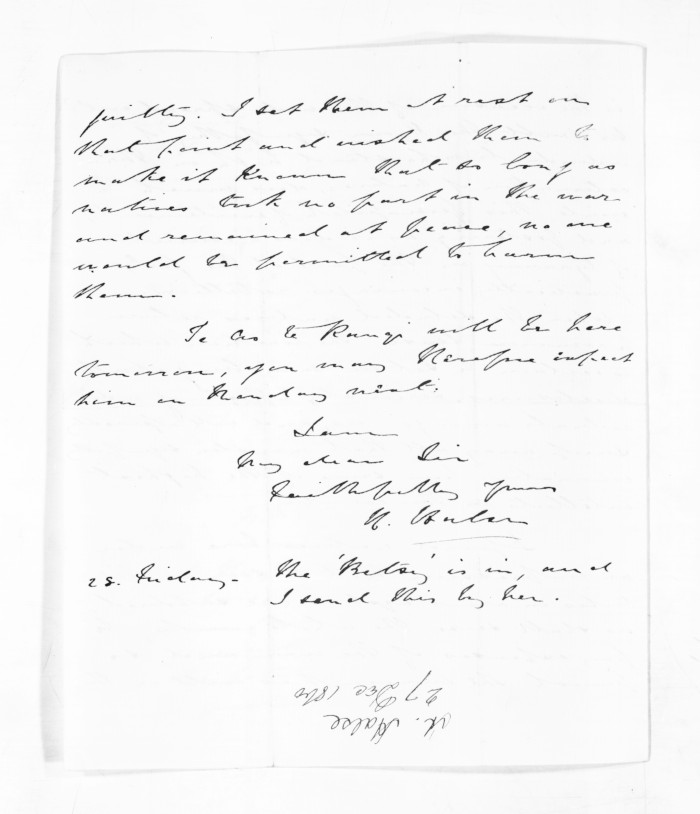 guilty. I set them at rest on
that point and wished them to
make it known that so long as
natives took no part in the war
and remained at peace, no one
would be permitted to harm
them.
Te to Rangi will be here
tomorrow, you may therefore expect
him on Monday next.
I am
My dear Sir
Faithfully yours
H. Halse
28. Friday - The 'Betsy' is in, and
I send this by her.
H. Halse
27 Dec 1860